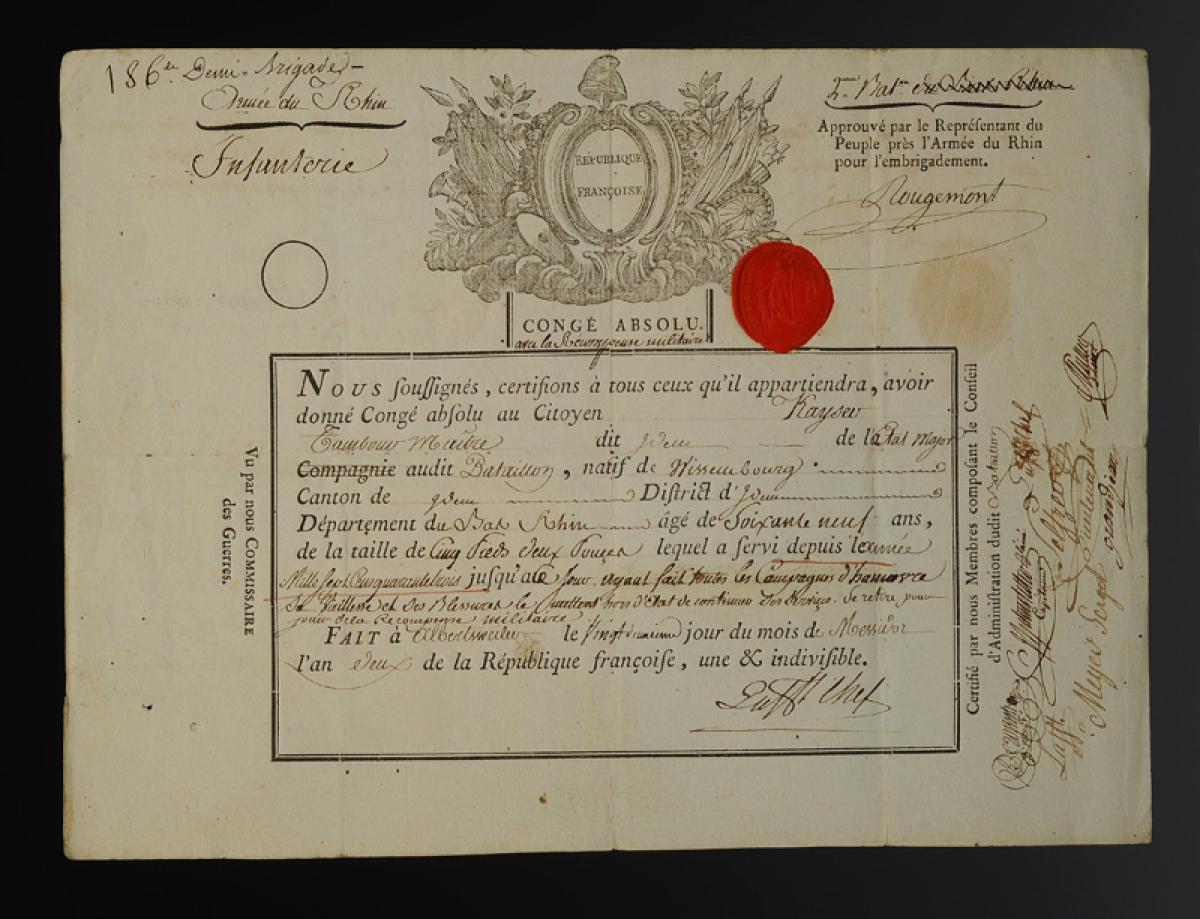 186.de Demi-Brigade
Armée du Rhin
Infanterie
2.e Bat.on du
Approuvé par le Représentant du
Peuple près l'Armée du Rhin
pour l'embrigadement.
Rougemont
RÉPUBLIQUE
FRANÇOISE
CONGÉ ABSOLU.
avec la Recompense militaire
Nous souſſignés, certifions à tous ceux qu'il appartiendra, avoir
donné Congé abſolu au Citoyen Kayser
Tambour Maitre dit Idem de l'Etat Major
Compagnie audit Bataillon, natif de Wissembourg
Canton de Idem Diſtrict d'Idem
Département du Bas Rhin âgé de Soixante neuf ans,
de la taille de Cinq Pieds deux Pouces lequel a ſervi depuis l'année
Mille Sept Cens quarante trois juſqu'à Ce Jour. ayant fait toutes les Campagnes d'hanovre
Sa Viellesse et Ses Blessures le mettent hors d'état de continuer Ses Services. Se retire pour
jouir de la Recompense militaire
FAIT à Albertsweiler le Vingt deuxieme jour du mois de Messidor
l'an deux de la République françoiſe, une & indiviſible.
Lafft Chef
Vu par nous COMMISSAIRE
des Guerres.
Certifié par nous Membres compoſant le Conſeil
d'Adminiſtration dudit Bataillon
Capitaine
Lafft
Meyer Sergent
gardien